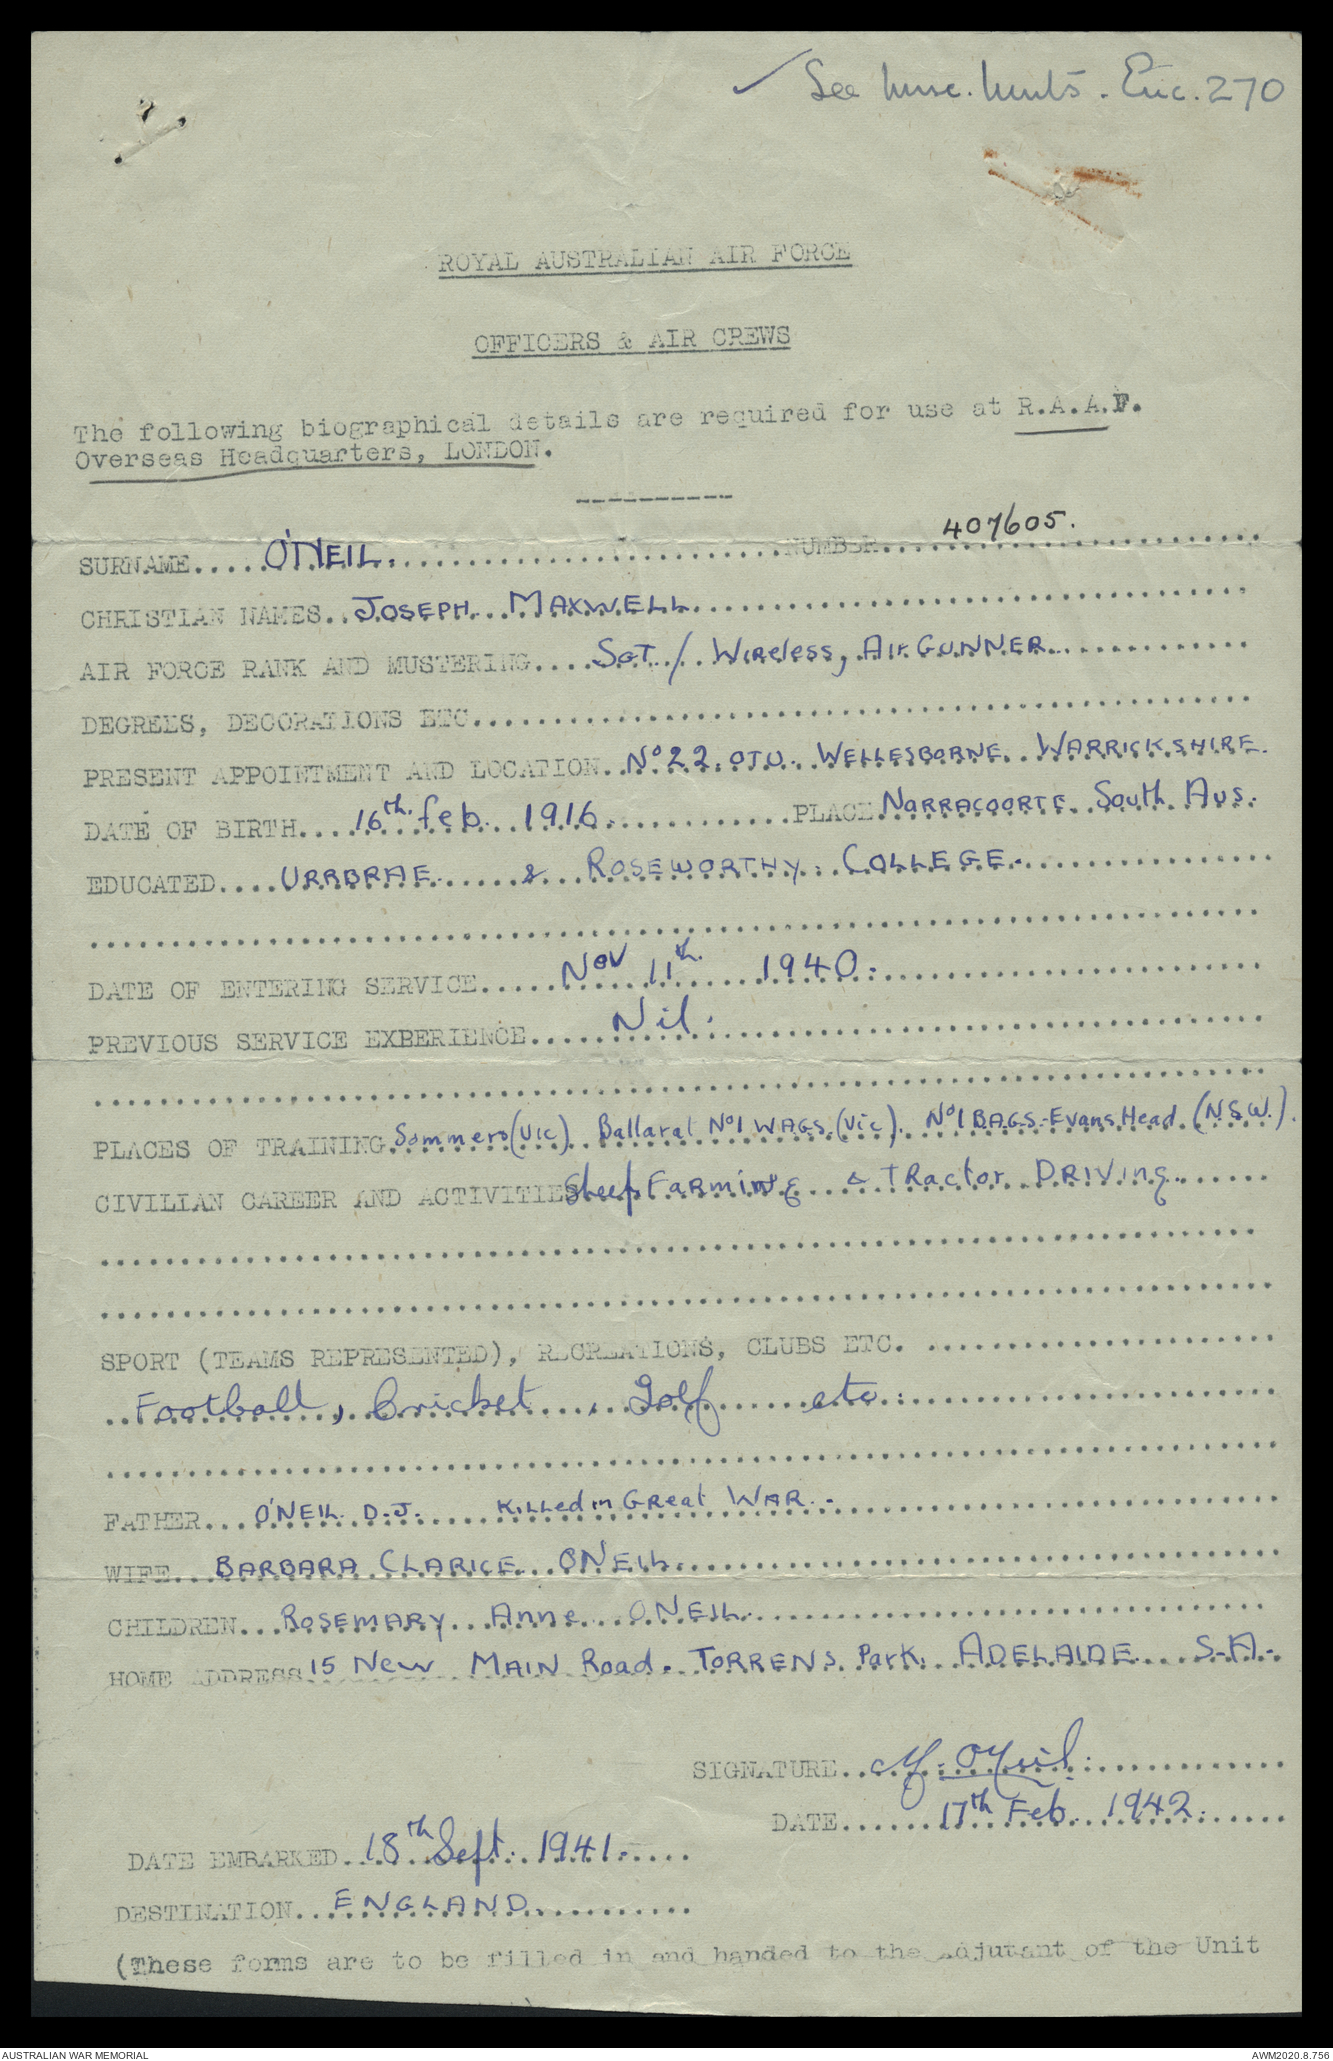 See Misc. Units. Enc. 270
ROYAL AUSTRALIAN AIR FORCE
OFFICERS & AIR CREWS
The following biographical details are required for use at R.A.A.F.
Overseas Headquarters, LONDON.
----------
SURNAME.....O'NEIL..........NUMBER....407605.
CHRISTIAN NAMES..JOSEPH MAXWELL..........
AIR FORCE RANK AND MUSTERING....SGT / Wireless, Air GUNNER..........
DEGREES, DECORATIONS ETC..........
PRESENT APPOINTMENT AND LOCATION..No 22. OTU. WELLESBORNE WARRICKSHIRE.
DATE OF BIRTH....16th feb. 1916..........PLACE NARRACOORTE South Aus.
EDUCATED....URRBRAE & ROSEWORTHY. COLLEGE..........
DATE OF ENTERING SERVICE.....Nov 11th. 1940..........
PREVIOUS SERVICE EXBERIENCE....Nil..........
PLACES OF TRAINING Sommers (Vic) Ballarat No1 WAGS. (Vic). No1 BAGS.-Evans Head (N.S.W.).
CIVILIAN CAREER AND ACTIVITIES Sheep Farming & TRactor DRIVing..........
SPORT (TEAMS REPRESENTED), RECREATIONS, CLUBS ETC. ..........
Football, Cricket, Golf etc...........
FATHER...O'NEIL. D.J. KILLed in GReat WAR.-
WIFE...BARBARA CLARICE O'NEIL..........
CHILDREN...ROSEMARY Anne O'NEIL..........
HOME ADDRESS 15 New MAIN Road. TORRENS Park. ADELAIDE S.A.-
SIGNATURE..O'Neil..........
DATE......17th Feb. 1942.......
DATE EMBARKED..18th Sept. 1941.....
DESTINATION...ENGLAND..........
(These forms are to be filled in and handed to the Adjutant of the Unit
AUSTRALIAN WAR MEMORIAL
AWM2020.8.756